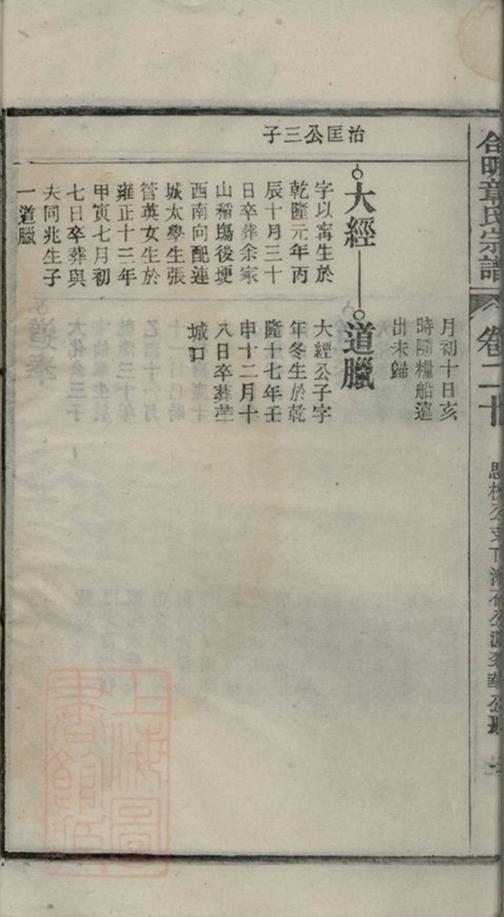 治匡公三子
月初十日亥
時隨糧船遠
出未歸
大經
字以甯生於
乾隆元年丙
辰十月三十
日卒葬余家
山稻塲後埂
西南向配連
城太學生張
管英女生於
雍正十二年
甲寅七月初
七日卒葬與
夫同兆生子
一道臘
道臘
大經公子字
年冬生於乾
隆十七年壬
申十二月十
八日卒葬茔
城口
章氏宗譜
卷二十
上海圖
書館藏